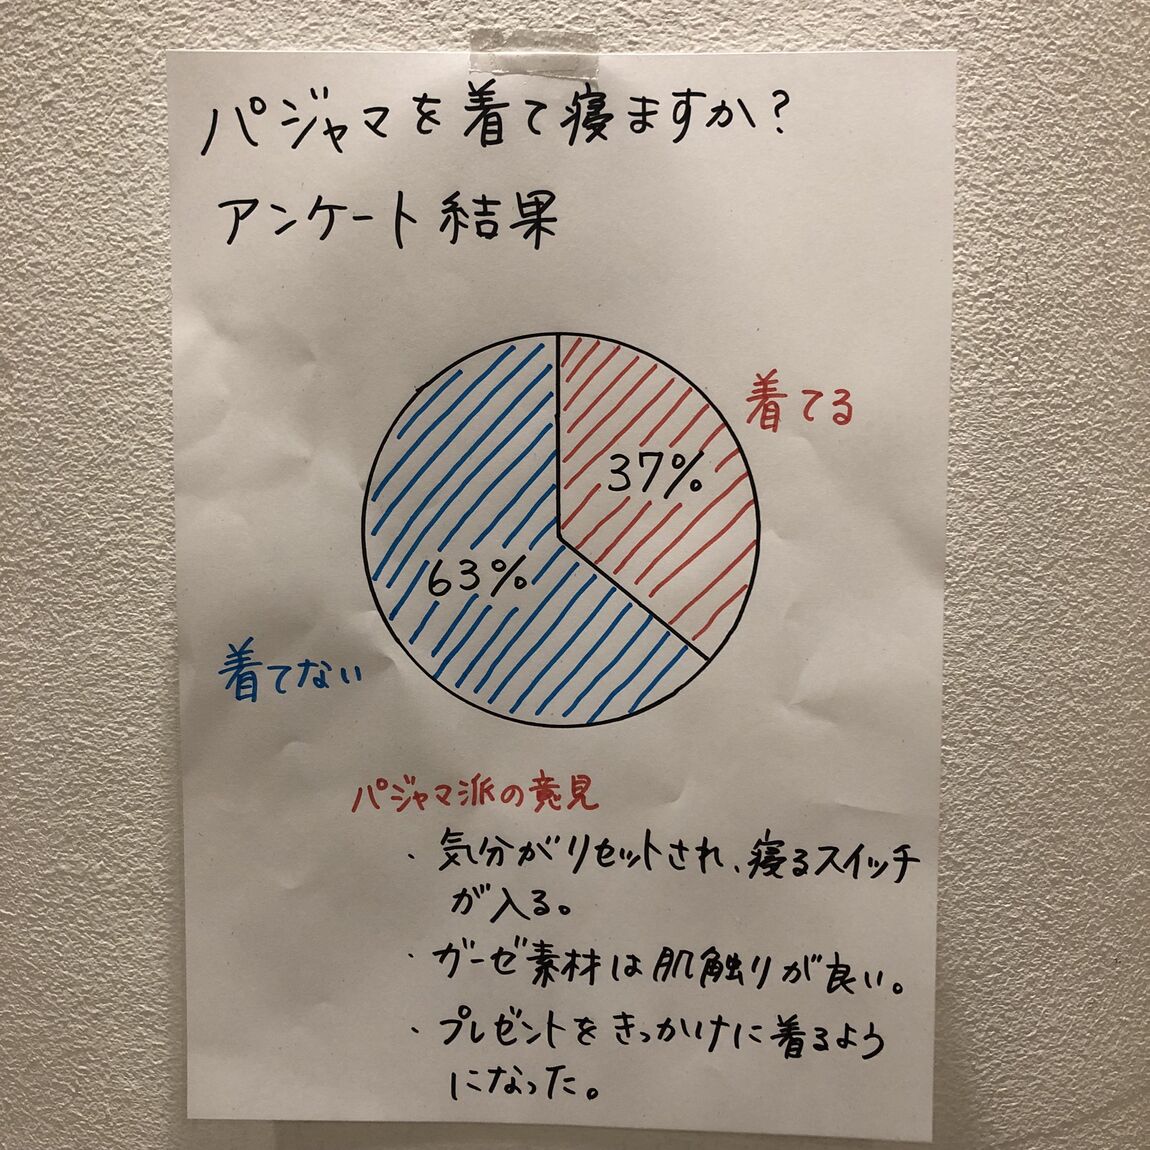 パジャマを着て寝ますか?
アンケート結果
着てる
37%
63%
着てない
パジャマ派の意見
・気分がリセットされ、寝るスイッチ
が入る。
・ガーゼ素材は肌触りが良い。
・プレゼントをきっかけに着るよう
になった。